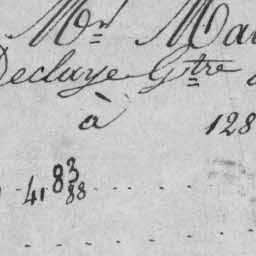 Mr Mal
Declaye Gtre
à 128
41 83 88